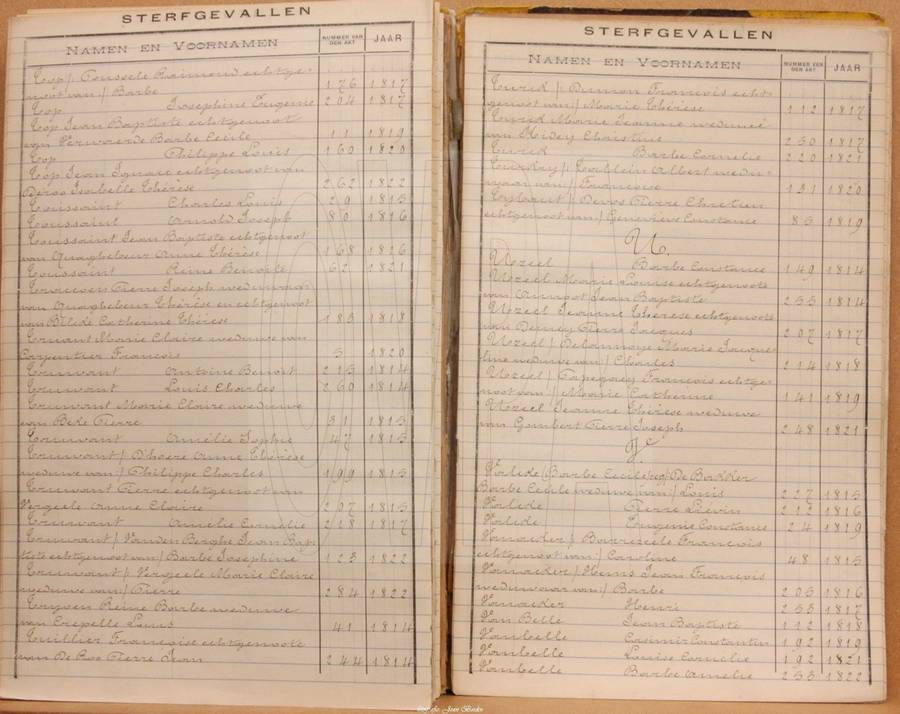 STERFGEVALLEN
NAMEN EN VOORNAMEN NUMMER VAN DEN AKT JAAR
Top / Toussele Raimond echtge-
noot van / Barbe 176 1817
Top Josephine Eugenie 204 1817
Top Jean Baptiste echtgenoot
van Verwaerde Barbe Cecile 11 1819
Top Philippe Louis 160 1820
Top Jean Ignace echtgenoot van
Deroo Isabelle Thérèse 262 1822
Toussaint Charles Louis 29 1815
Toussaint Arnold Joseph 80 1816
Toussaint Jean Baptiste echtgenoot
van Quaghebeur Anne Thérèse 168 1816
Toussaint Reine Benoite 62 1821
Pierre Joseph weduwaar
van Quaghebeur Thérèse en echtgenoot
van Catherine Thérèse 183 1818
Marie Claire weduwe van
Carpentier François 5 1820
Truwant Antoine Benoit 215 1814
Truwant Louis Charles 260 1814
Truwant Marie Claire weduwe
van Beke Pierre 31 1815
Truwant Amélie Sophie 47 1815
Truwant / D'hoere Anne Thérèse
weduwe van / Philippe Charles 199 1815
Truwant Pierre echtgenoot van
Vergeele Anne Claire 207 1815
Truwant Amelie Cornélie 218 1817
Truwant / Vanden Berghe Jean Bap-
tiste echtgenoot van / Barbe Josephine 23 1822
Truwant / Vergeele Marie Claire
weduwe van / Pierre 284 1822
Reine Barbe weduwe
van Crepelle Louis 41 1814
Tuillier Françoise echtgenoote
van De Roo Pierre Jean 244 1814
STERFGEVALLEN
NAMEN EN VOORNAMEN NUMMER VAN DEN AKT JAAR
Turck / Dumon François echt-
genoot van / Marie Thérèse 112 1817
Turck Marie Jeanne weduwe
van Christine 250 1817
Turck Barbe Cornelie 220 1821
Albert wedu-
waar van / Françoise 131 1820
/ Devos Pierre Chretien
echtgenoot van / Geneviève Constance 85 1819
U.
Uzeel Barbe Constance 149 1814
Uzeel Marie Louise echtgenoote
van Jean Baptiste 255 1814
Uzeel Jeanne Therese echtgenoote
van Pierre Jacques 207 1817
Uzeel / Delannoye Marie Jacque-
line weduwe van / Charles 214 1818
Uzeel / François echtge-
noot van / Marie Catherine 141 1819
Uzeel Jeanne Thérèse weduwe
van Gombert Pierre Joseph 248 1821
Valcke (Barbe Cecile) De Bakker
Barbe Cecile weduwe van / Louis 227 1815
Valcke Pierre Lievin 212 1816
Valcke Eugenie Constance 24 1819
Vanacker / François
echtgenoot van / Caroline 48 1815
Vanacker / Jean François
weduwaar van / Barbe 205 1816
Vanacker Henri 253 1817
Van Belle Jean Baptiste 112 1818
Vanbelle Casimir Constantin 192 1819
Vanbelle Louise Cornelie 192 1821
Vanbelle Barbe Amelie 255 1822